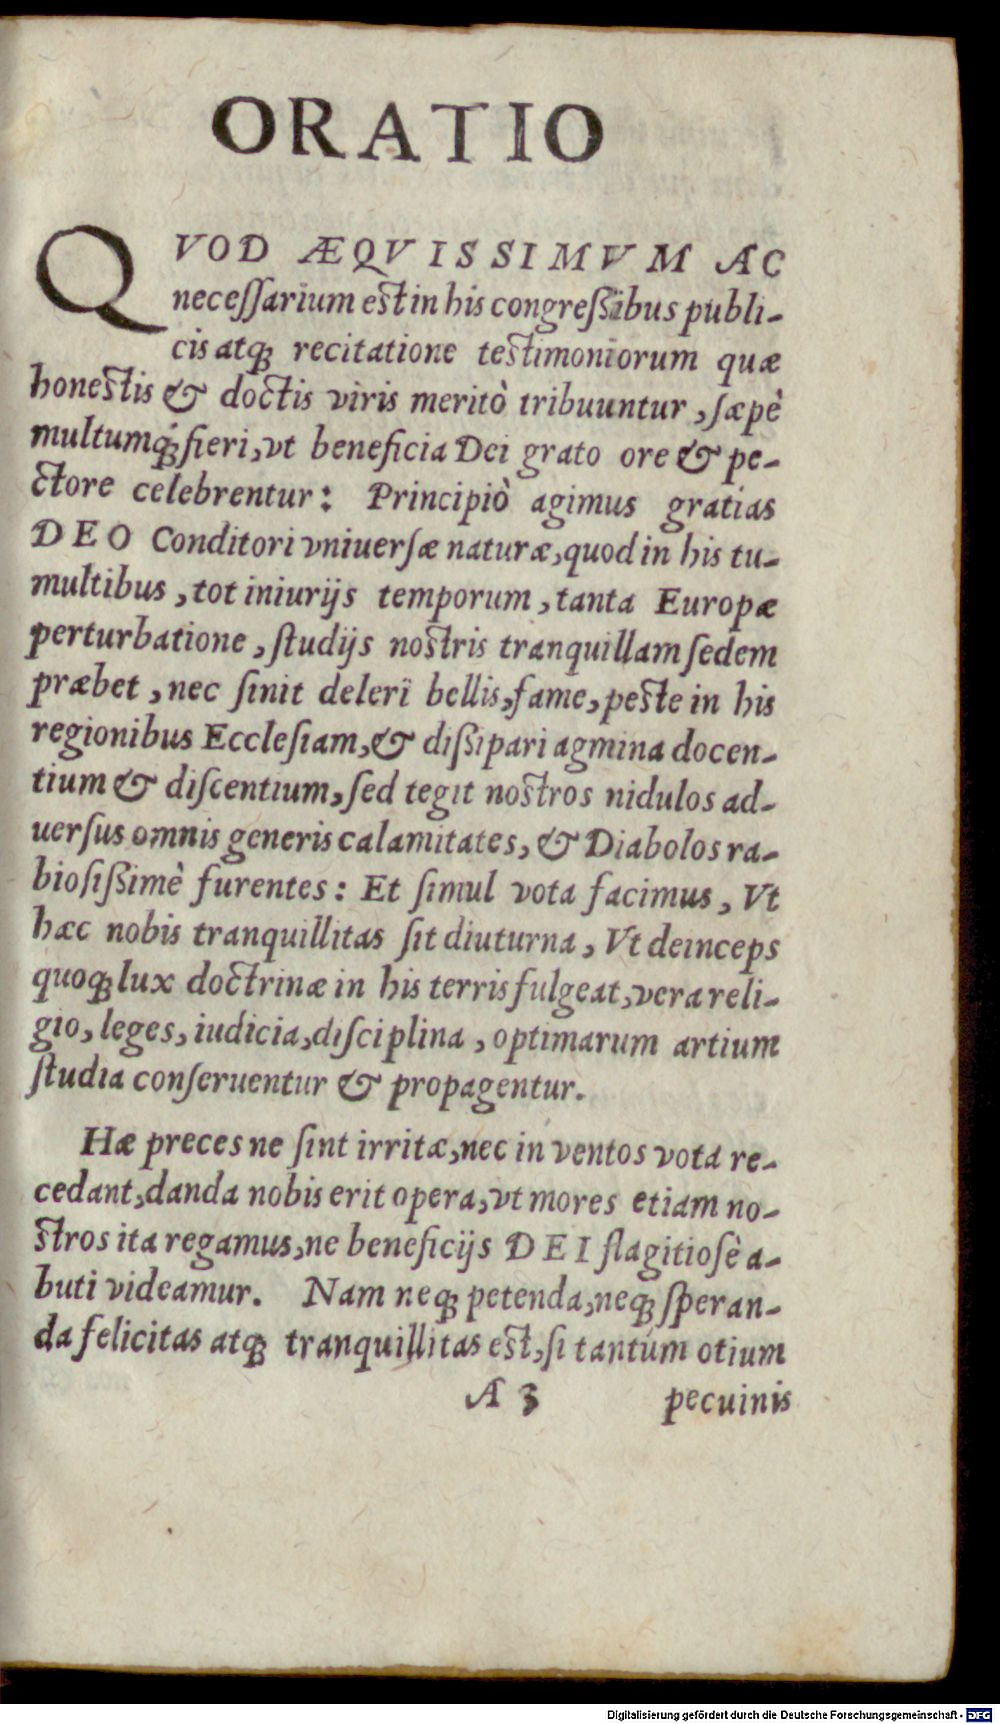 ORATIO
QVOD ÆQVISSIMVM AC
necessarium est in his congreßibus publi-
cis atq; recitatione testimoniorum quæ
honestis & doctis viris meritò tribuuntur, sæpè
multumq́; fieri, vt beneficia Dei grato ore & pe-
ctore celebrentur: Principiò agimus gratias
DEO Conditori vniuersæ naturæ, quod in his tu-
multibus, tot iniurijs temporum, tanta Europæ
perturbatione, studijs nostris tranquillam sedem
præbet, nec sinit deleri bellis, fame, peste in his
regionibus Ecclesiam, & dißipari agmina docen-
tium & discentium, sed tegit nostros nidulos ad-
uersus omnis generis calamitates, & Diabolos ra-
biosißimè furentes: Et simul vota facimus, Vt
hæc nobis tranquillitas sit diuturna, Vt deinceps
quoq; lux doctrinæ in his terris fulgeat, vera reli-
gio, leges, iudicia, disciplina, optimarum artium
studia conseruentur & propagentur.
Hæ preces ne sint irritæ, nec in ventos vota re-
cedant, danda nobis erit opera, vt mores etiam no-
stros ita regamus, ne beneficijs DEI flagitiosè a-
buti videamur. Nam neq; petenda, neq; speran-
da felicitas atq; tranquillitas est, si tantum otium
A 3 pecuinis
Digitalisierung gefördert durch die Deutsche Forschungsgemeinschaft - DFG